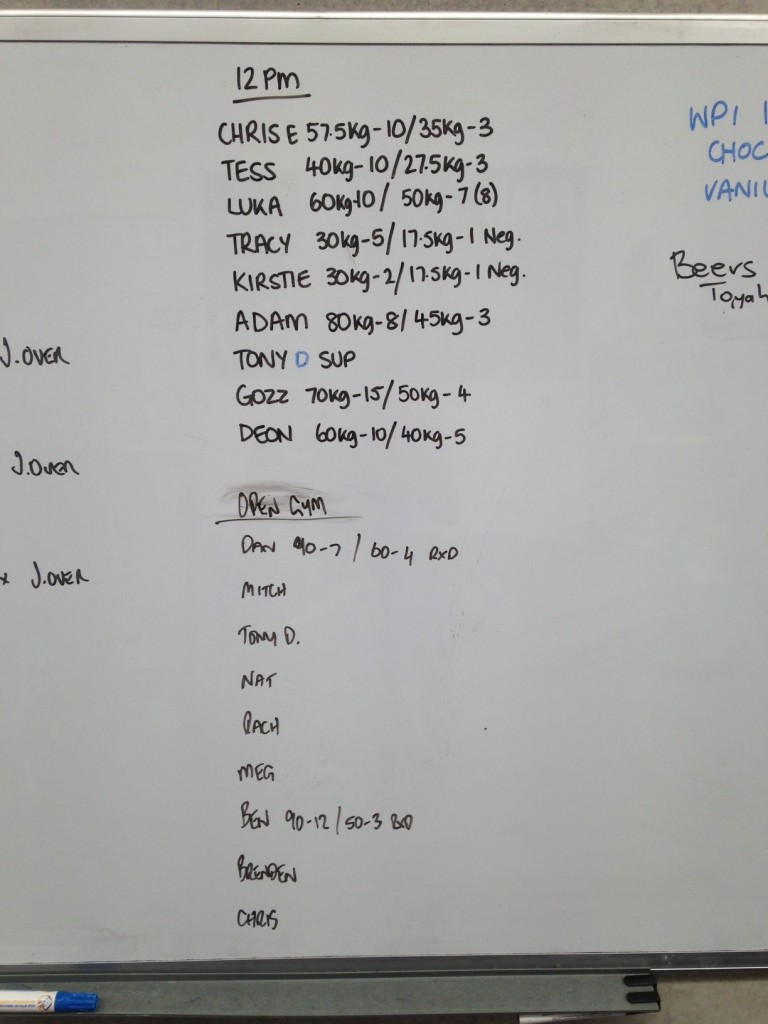 12 Pm
CHRIS E 57.5Kg-10/35Kg-3
TESS 40kg-10/27.5kg-3
LUKA 60Kg-10/ 50kg-7 (8)
TRACY 30kg-5/17.5kg-1 Neg.
KIRSTIE 30kg-2/17.5kg-1 Neg.
ADAM 80kg-8/45kg-3
TONY D SUP
GOZZ 70kg-15/50kg-4
DEON 60kg-10/40kg-5
OPEN GYM
DAN 90-7 / 60-4 RXD
MITCH
TONY D.
NAT
RACH
MEG
BEN 90-12/50-3 RXD
BRENDEN
CHRIS
J.OVER
J.OVER
x J.OVER
WPI
CHOC
VANIL
Beers